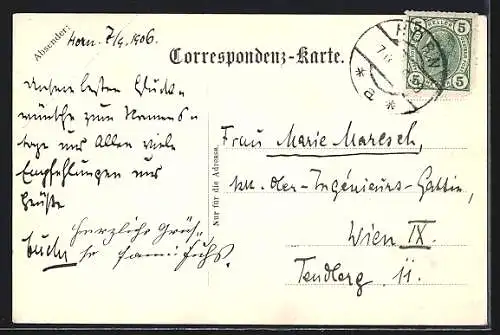 Absender:
Horn. 7/9. 1906.
Correspondenz-Karte.
HORN
a
5 HELLER 5
5 5
Unsere besten Glück-
wünsche zum Namens-
tage und Allen viele
Empfehlungen und
Grüße
Herzliche Grüs-
se Fanni Fuchs.
Nur für die Adresse.
Frau Marie Maresch,
k.k. Ober-Ingénieurs-Gattin,
Wien IX.
Tendlerg. 11.